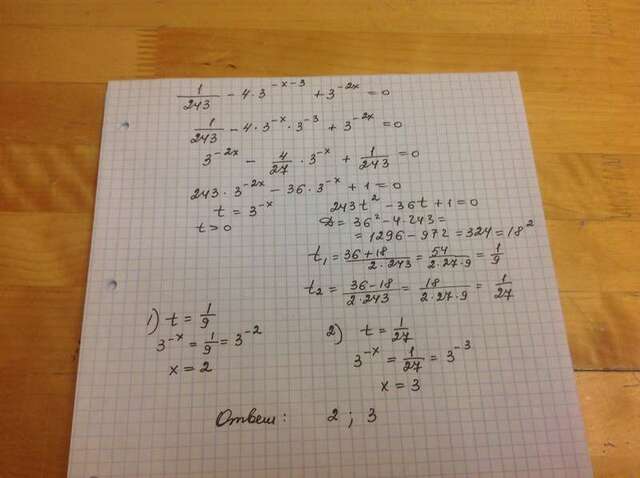 1/243 - 4·3^(-x-3) + 3^(-2x) = 0
1/243 - 4·3^(-x)·3^(-3) + 3^(-2x) = 0
3^(-2x) - 4/27·3^(-x) + 1/243 = 0
243·3^(-2x) - 36·3^(-x) + 1 = 0
t = 3^(-x)
t > 0
243t² - 36t + 1 = 0
D = 36² - 4·243 =
= 1296 - 972 = 324 = 18²
t₁ = (36+18)/(2·243) = 54/(2·27·9) = 1/9
t₂ = (36-18)/(2·243) = 18/(2·27·9) = 1/27
1) t = 1/9
3^(-x) = 1/9 = 3^(-2)
x = 2
2) t = 1/27
3^(-x) = 1/27 = 3^(-3)
x = 3
Ответ: 2 ; 3